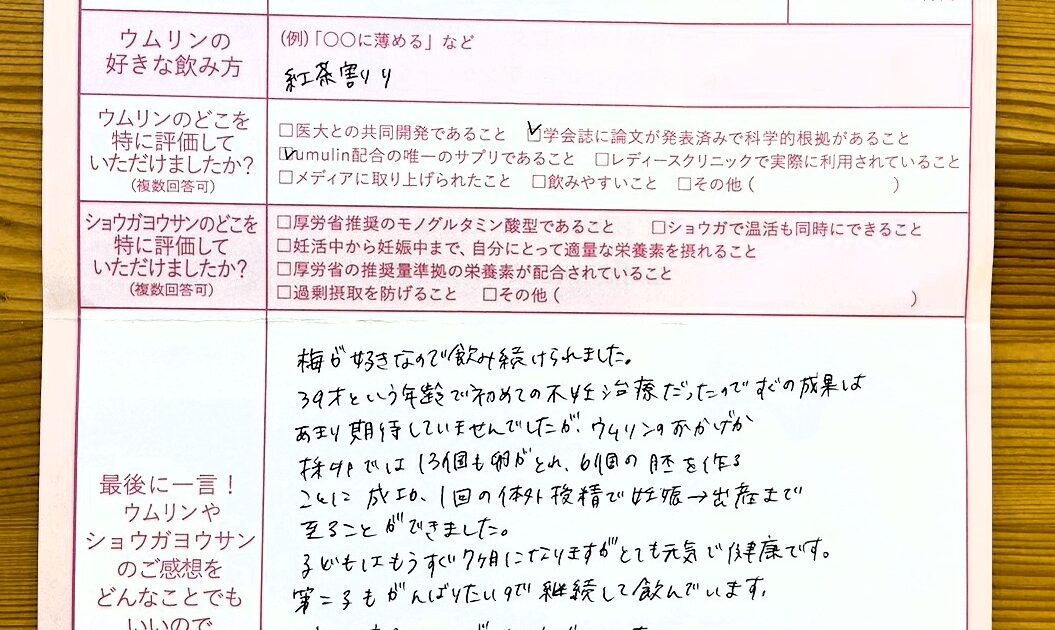 ウムリンの
好きな飲み方
(例)「〇〇に薄める」など
紅茶割り
ウムリンのどこを
特に評価して
いただけましたか?
(複数回答可)
□医大との共同開発であること ☑学会誌に論文が発表済みで科学的根拠があること
☑umulin配合の唯一のサプリであること □レディースクリニックで実際に利用されていること
□メディアに取り上げられたこと □飲みやすいこと □その他( )
ショウガヨウサンのどこを
特に評価して
いただけましたか?
(複数回答可)
□厚労省推奨のモノグルタミン酸型であること □ショウガで温活も同時にできること
□妊活中から妊娠中まで、自分にとって適量な栄養素を摂れること
□厚労省の推奨量準拠の栄養素が配合されていること
□過剰摂取を防げること □その他( )
最後に一言!
ウムリンや
ショウガヨウサン
のご感想を
どんなことでも
いいので
梅が好きなので飲み続けられました。
39才という年齢で初めての不妊治療だったのですぐの成果は
あまり期待していませんでしたが、ウムリンのおかげか
採卵では13個も卵がとれ、6個の胚を作る
ことに成功、1回の体外授精で妊娠→出産まで
至ることができました。
子どもはもうすぐ7ヶ月になりますがとても元気で健康です。
第二子もがんばりたいので継続して飲んでいます。